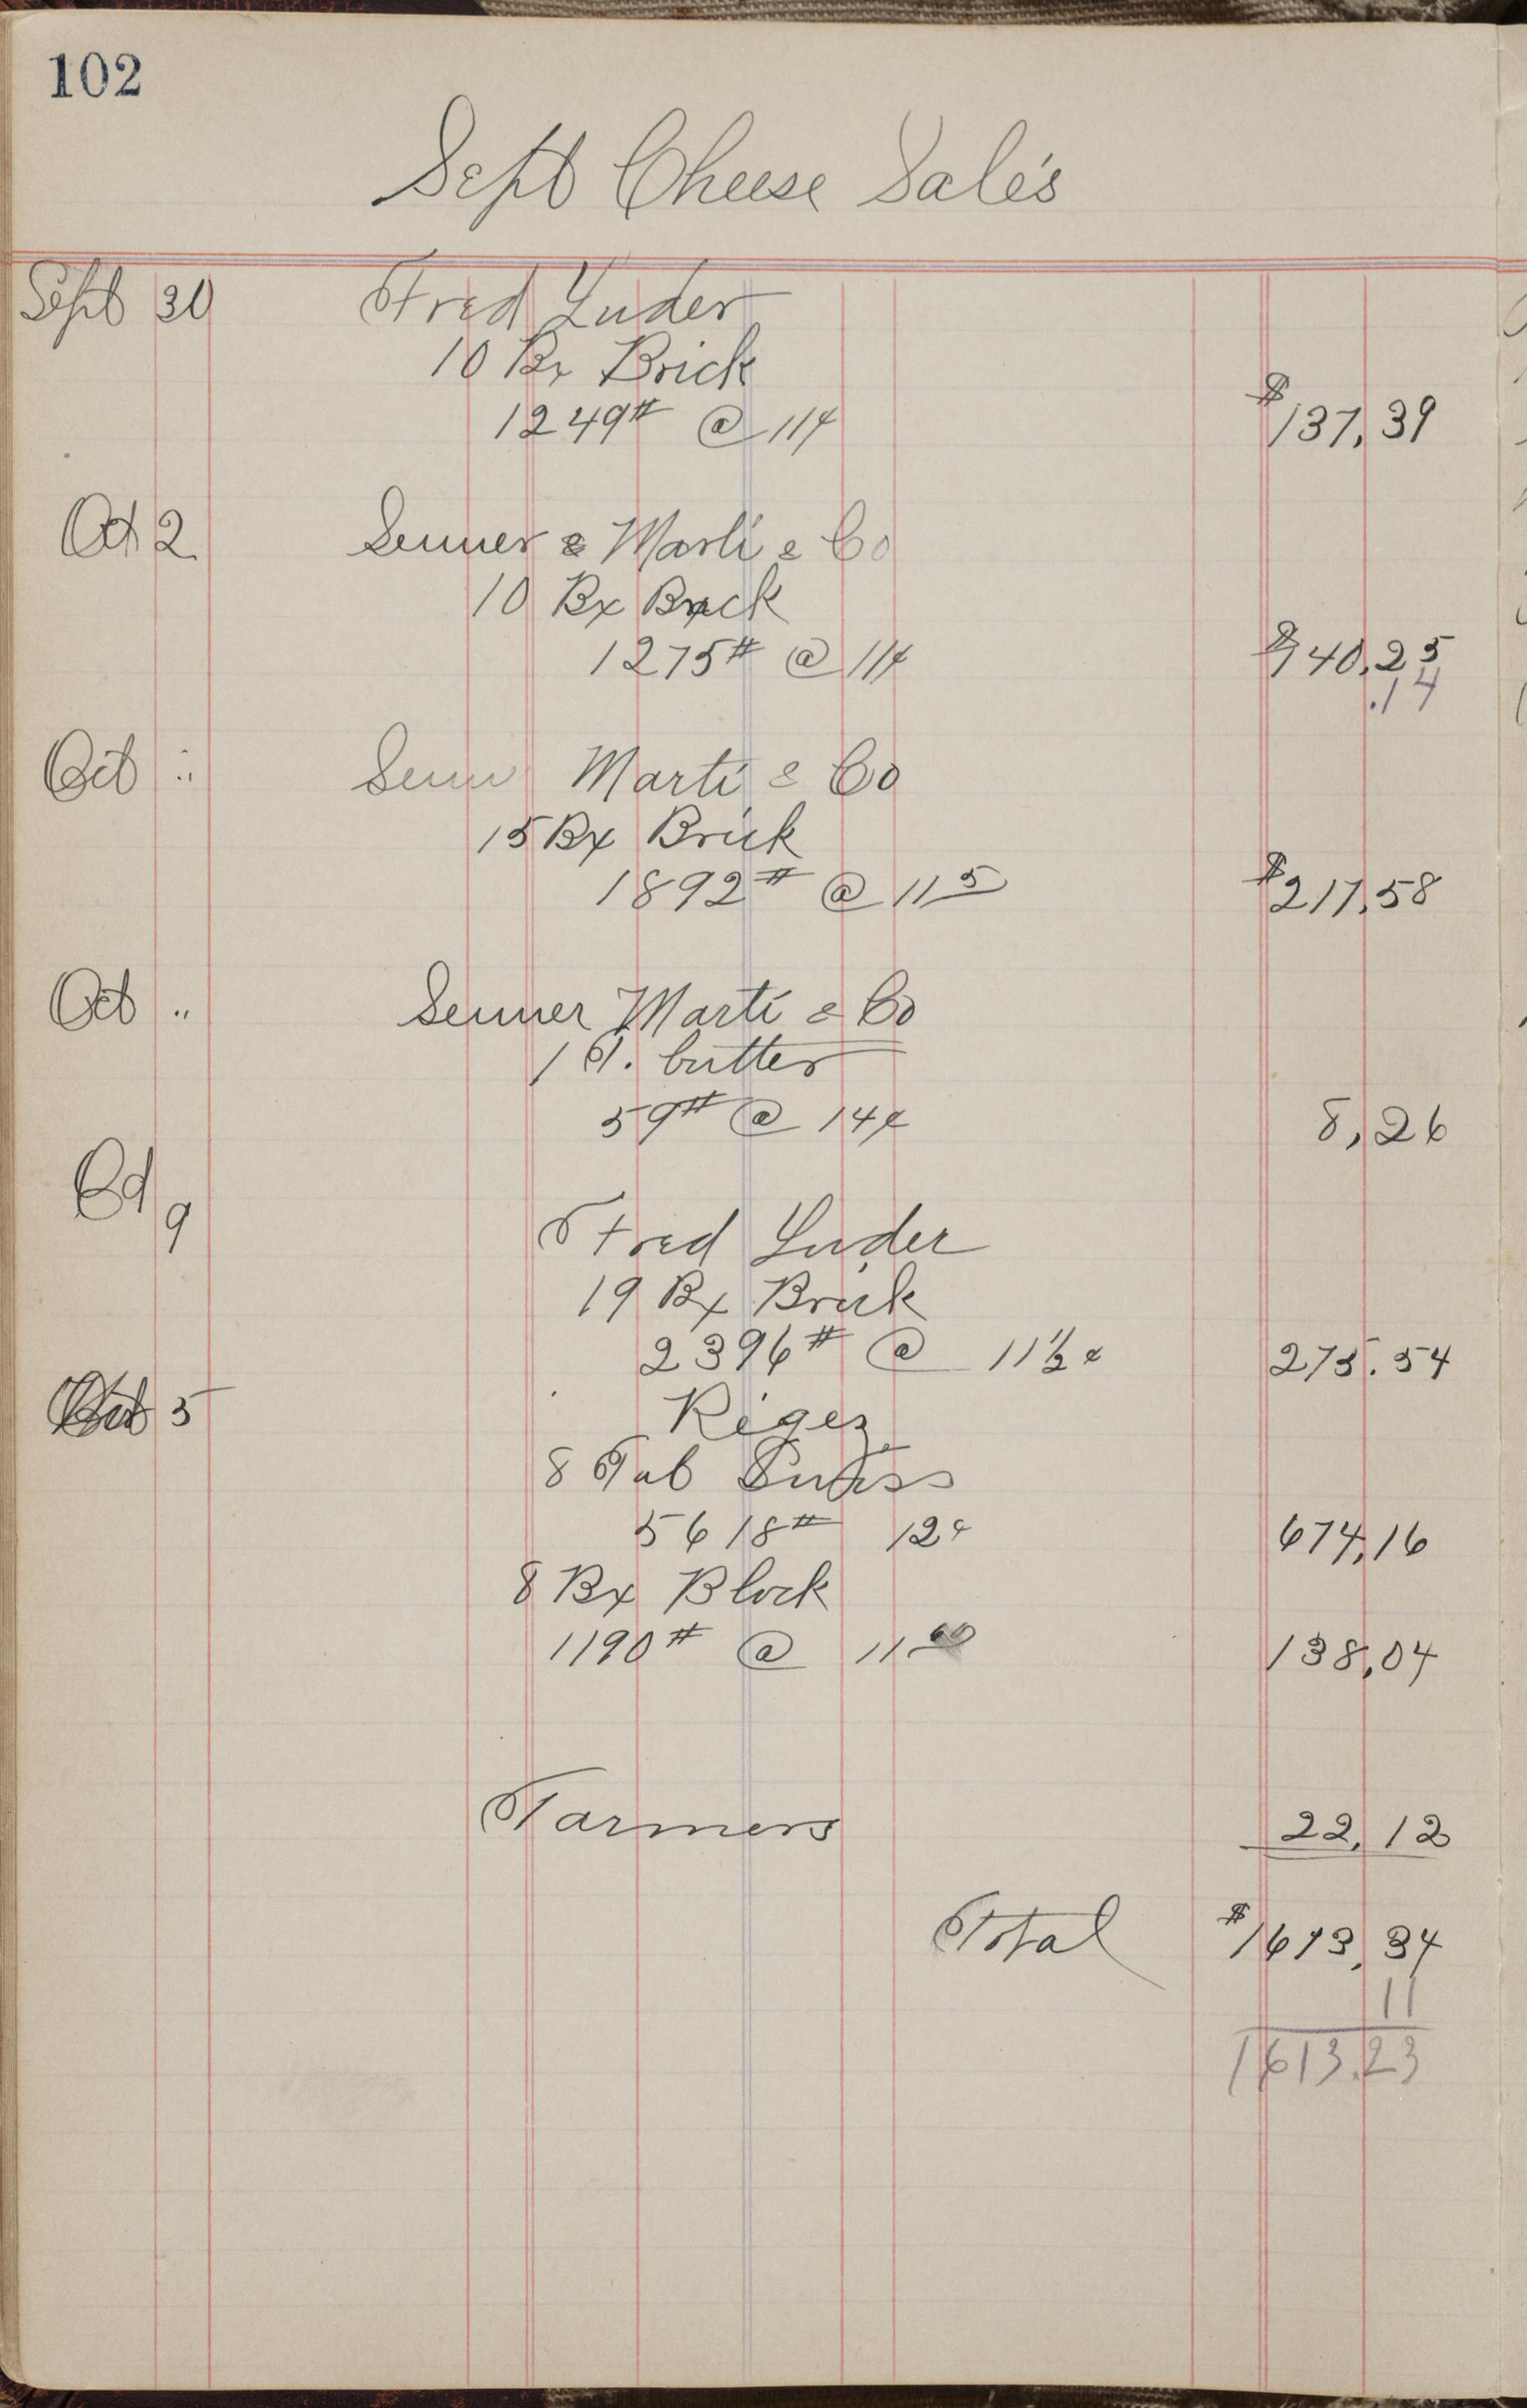 102
Sept Cheese Sales
Sept 30 Fred Luder
10 Bx Brick
1249# @ 11¢ $137,39
Oct 2 Senner & Marti & Co
10 Bx Brick
1275# @ 11¢ $140,25
.14
Oct " Senn Marti & Co
15 Bx Brick
1892# @ 11 5 $217,58
Oct " Senner Marti & Co
1 T. butter
59# @ 14¢ 8,26
Oct 9
Fred Luder
19 Bx Brick
2396# @ 11½¢ 275.54
Oct 5 Regez
8 Tub Swiss
5618# 12¢ 674,16
8 Bx Block
1190# @ 11 60 138,04
Farmers 22,12
Total $1613,34
11
1613.23